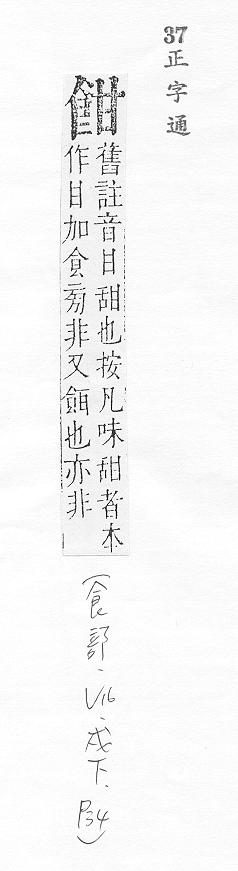 37
正字通
舊註音日甜也按凡味甜者本
作日加食旁非又也亦非
(食部、V16、戌下、P34)